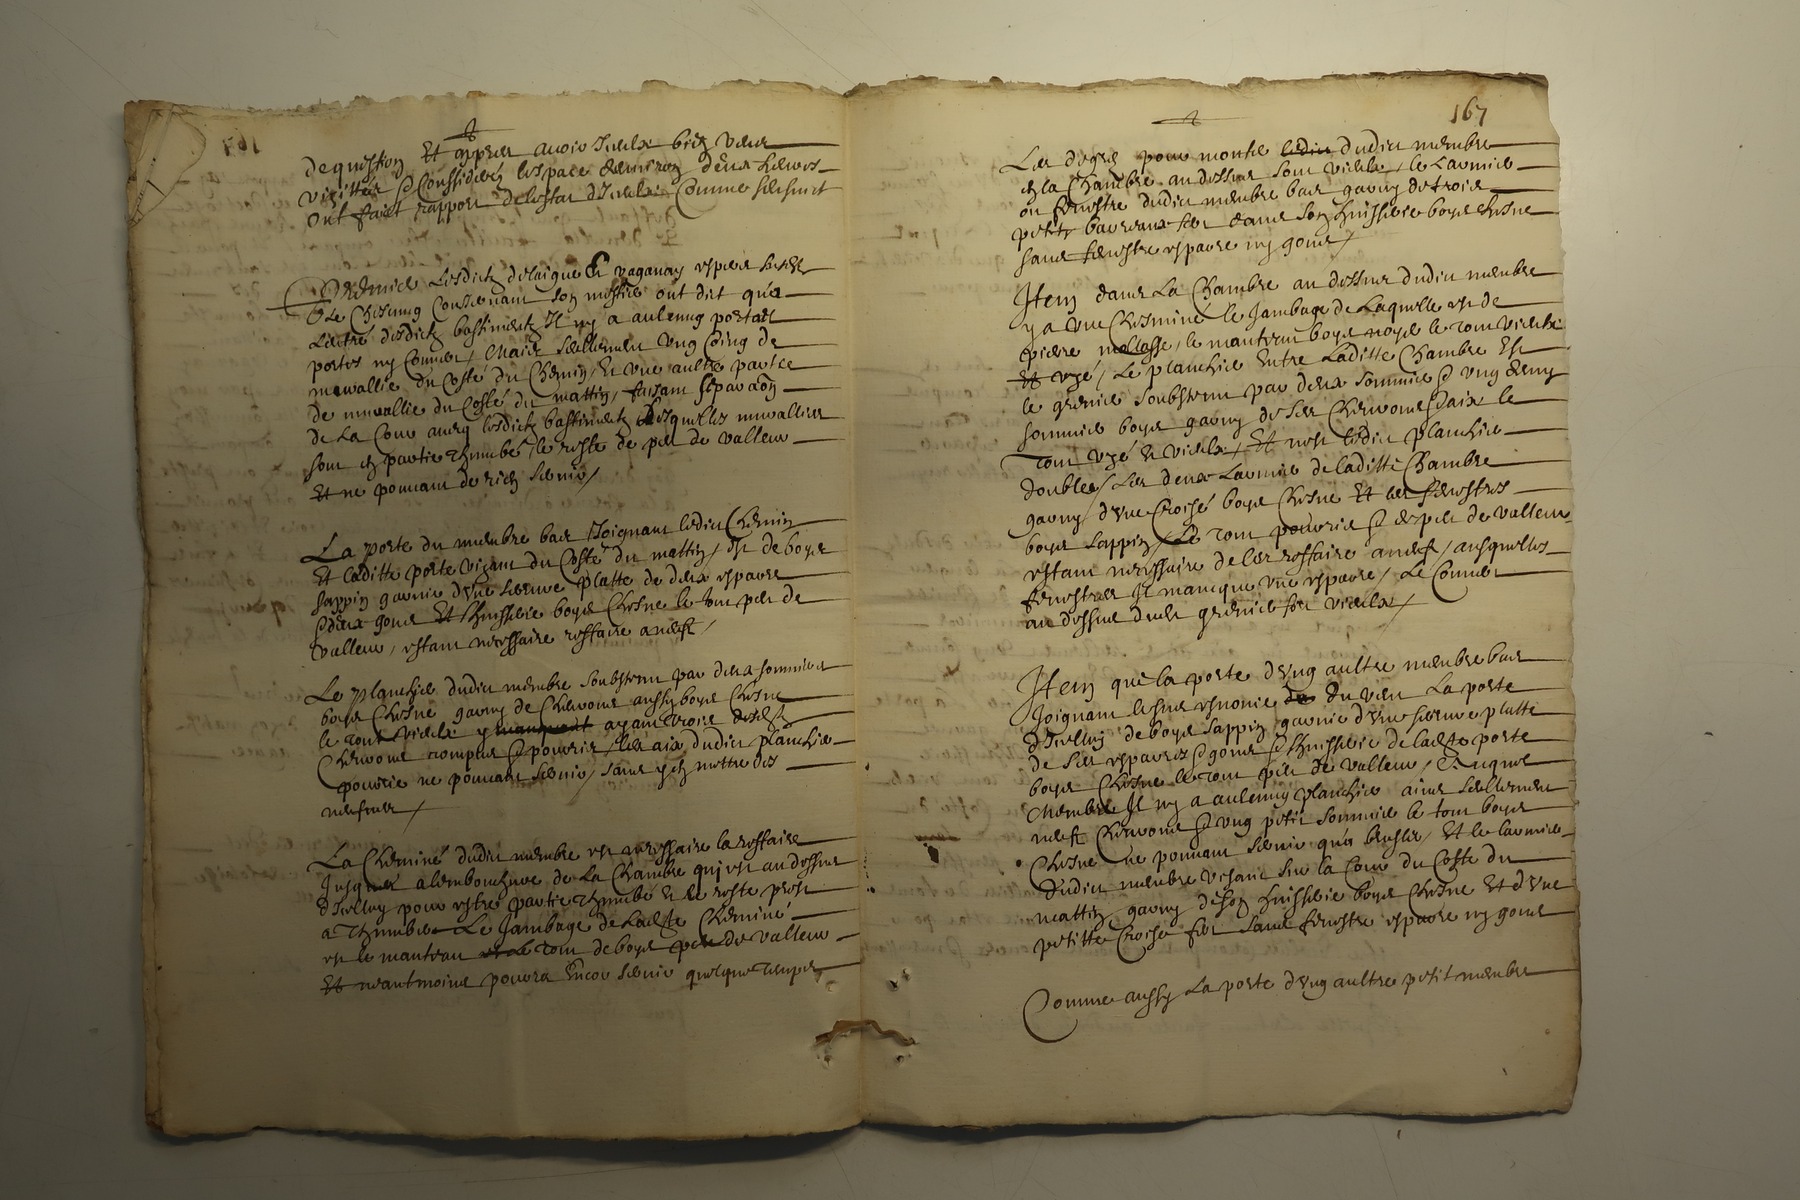 de question Et apres avoir Iceulx bien veuz
visittez & Considerez lespace denviron deux heures
ont faict rapport de lestat d'Iceulx Comme sensuit
Premier Lesdictz delaigue & paganay
Le Chesning Concernant son mestier ont dit qua
Lentree desdictz bastimentz Il ny a aulcung portail
portes ny Couvert / Mais seullement ung Coing de
muraillie du Costé du Chemin, Et une aultre partie
de muraillie du Costé du mattin, faisant separaõn
de La Cour avecq lesdictz bastimentz Lesquelles murallies
sont en partie thumbé, le reste de peu de valleur
Et ne pouvant de rien servir /
La porte du membre bas Joignant ledict Chemin
Et laditte porte vizant du Costé du mattin, est de boys
sappin garnie d'une serrure platte de deux espares
& deux gons Et l'huisserie boys Chesne le tout peu de
valleur, estant necessaire reffaire a neuf /
Le planchier dudict membre soubstenu par deux sommiers
boys Chesne garny de Chevrons aussy boys Chesne
le tout vieulx y manquant ayant trois desd
Chevrons rompus & pourris, les aix dudict planchier
pourris ne pouvant servir, sans y en mettre des
neufves /
La Cheminé dudict membre est necessaire la reffaire
Jusques a lembouchure de La Chambre qui est au dessus
d'Icelluy pour estre partie thumbé Et le reste prest
a thumber Le Jambage de Ladte Cheminé
est le manteau et Le tout de boys peu de valleur
Et neantmoins pourra Encor servir quelque temps
167
Les degres pour monter ledict dudict membre
en la Chambre au dessus sont vieulx, le Larmier
ou fenestre dudict membre bas garny de trois
petitz barreaux fer dans son huisserie boys Chesne
sans fenestre espares ny gons /
Item dans La Chambre au dessus dudict membre
y a une Chemine le Jambage de Laquelle est de
pierre mollasse, le manteau boys noyer le tout vieulx
Et uzé, Le planchier Entre Laditte Chambre Et
le grenier soubstenu par deux sommiers & ung demy
sommier boys garny de ses Chevrons & aix le
tout uzé Et vieulx, Et nest ledict planchier
double, Les deux Larmiers de laditte Chambre
garny d'une Croisé boys Chesne Et les fenestres
boys sappin, Le tout pourris & de peu de valleur
estant necessaire de les reffaire a neuf, ausquelles
fenestres Il manque une espare, Le Couvert
au dessus dud grenier fort vieulx /
Item que la porte d'ung aultre membre bas
Joignant le sus esnomé du veu La porte
d'Icelluy de boys sappin garnie d'une serrure platte
de ses espares & gons & l'huisserie de ladte porte
boys Chesne le tout peu de valleur, Auquel
membre Il ny a aulcung planchier ains seullement
neuf Chevrons & ung petit sommier le tout boys
Chesne ne pouvant servir qua brusler, Et le larmier
dudict membre visant sur la Cour du Costé du
mattin garny de son huisserie boys Chesne Et d'une
petitte Croise fer sans fenestre espare ny gons
Comme aussy La porte d'ung aultre petit membre